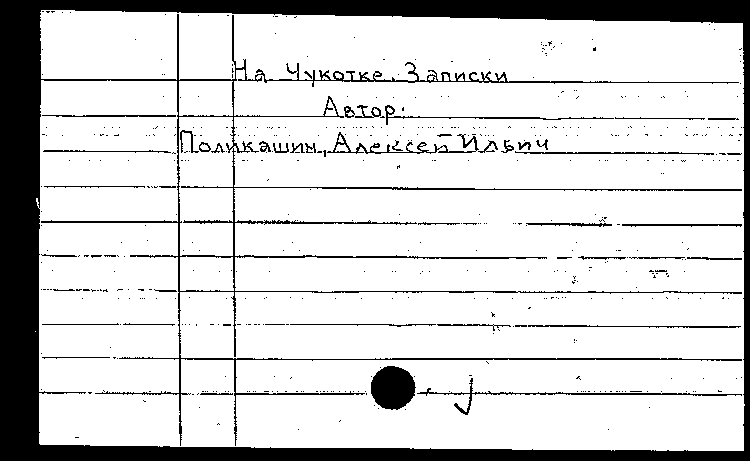 На Чукотке. Записки
Автор:
Поликашин, Алексей Ильич